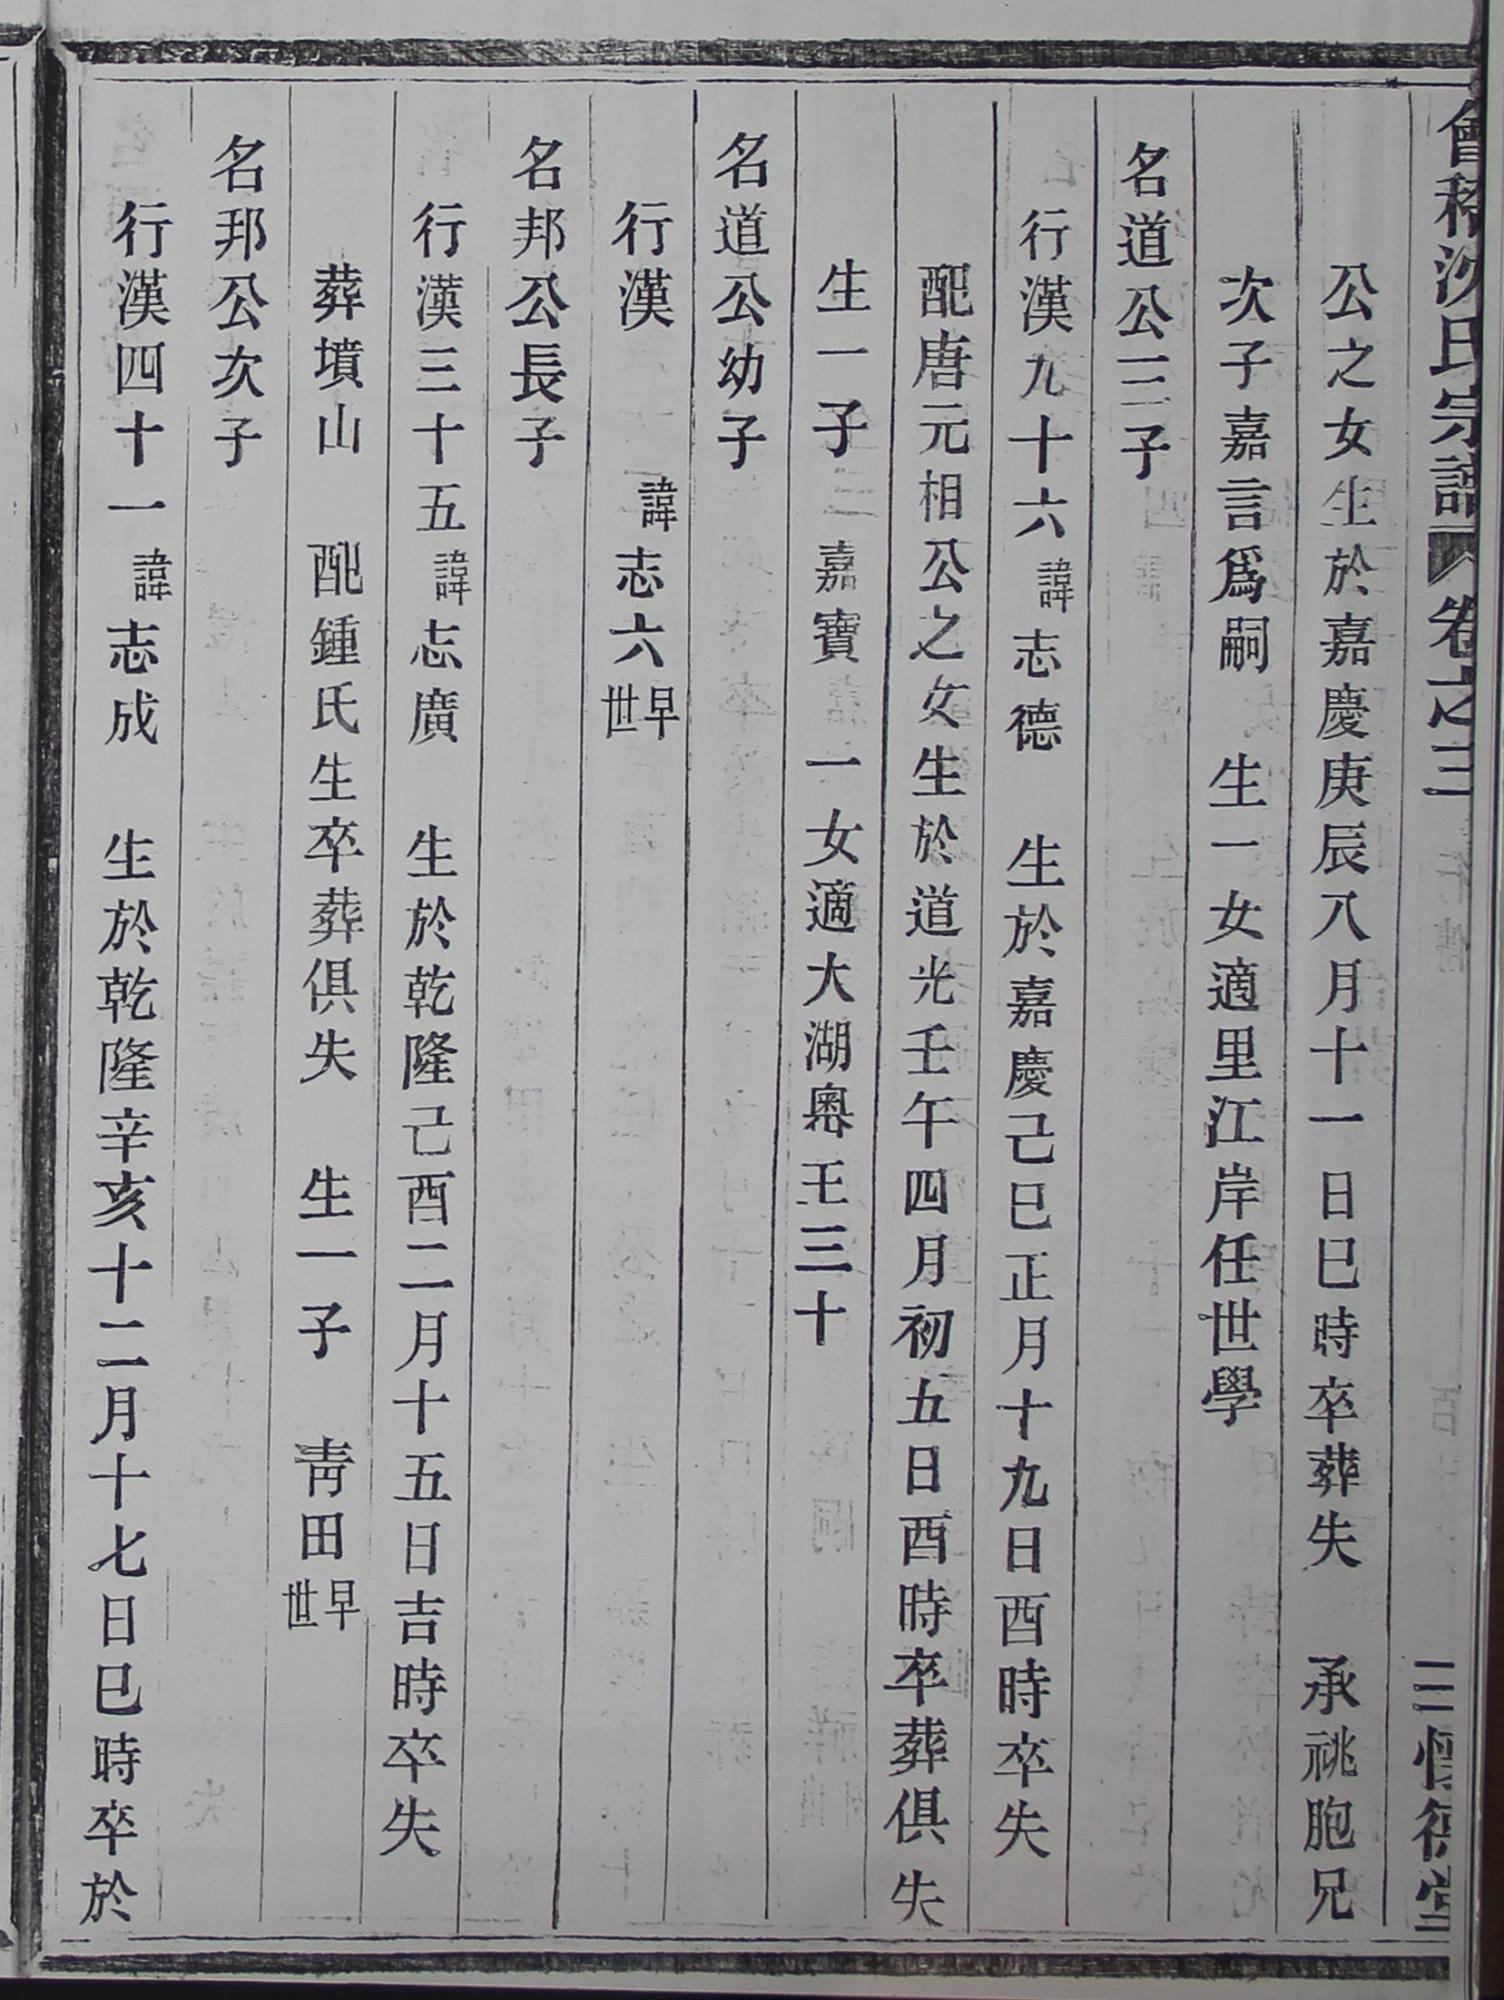 會稽沈氏宗譜 卷之三 三 懷德堂
公之女生於嘉慶庚辰八月十一日巳時卒葬失 承祧胞兄
次子嘉言爲嗣 生一女適里江岸任世學
名道公三子
行漢九十六諱志德 生於嘉慶己巳正月十九日酉時卒失
配唐元相公之女生於道光壬午四月初五日酉時卒葬俱失
生一子 嘉寶 一女適大湖奧王三十
名道公幼子
行漢 諱志六早世
名邦公長子
行漢三十五諱志廣 生於乾隆己酉二月十五日吉時卒失
葬墳山 配鍾氏生卒葬俱失 生一子 靑田早世
名邦公次子
行漢四十一諱志成 生於乾隆辛亥十二月十七日巳時卒於